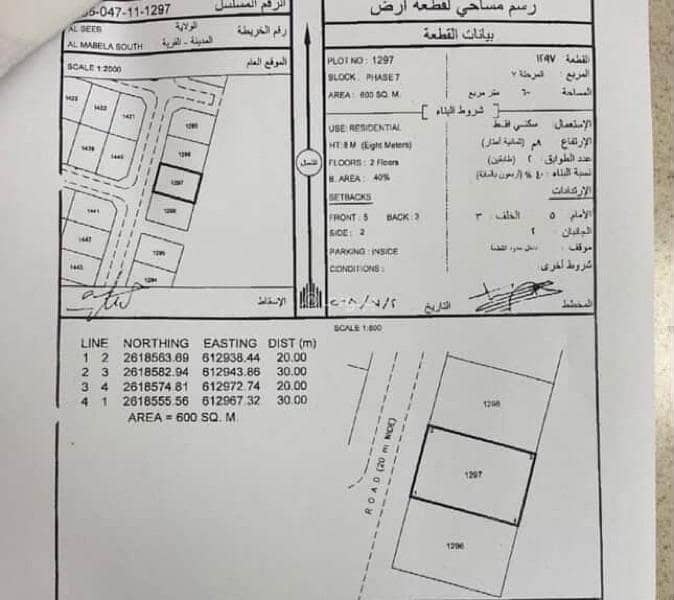 رسم مساحي لقطعة أرض
بيانات القطعة
PLOT NO : 1297
القطعة ١٢٩٧
BLOCK : PHASE 7
المربع المرحلة ٧
AREA : 600 SQ. M.
المساحة ٦٠٠ متر مربع
شروط البناء
USE: RESIDENTIAL
الإستعمال: سكني فقط
HT: 8 M (Eight Meters)
الإرتفاع ٨م (ثمانية أمتار)
FLOORS : 2 Floors
عدد الطوابق ٢ (طابقين)
B. AREA : 40%
نسبة البناء ٤٠ % (أربعون بالمائة)
SETBACKS
الإرتدادات
FRONT : 5 BACK : 3
الأمام ٥ الخلف: ٣
SIDE : 2
الجانبان ٢
PARKING : INSIDE
موقف: داخل حدود القطعة
CONDITIONS :
شروط أخرى:
المخطط
التاريخ
الرقم المسلسل
-047-11-1297
رقم الخريطة
الولاية
AL SEEB
المدينة - القرية
AL MABELA SOUTH
الموقع العام
SCALE 1:2000
1423
1422
1421
1439
1440
1441
1442
1443
1295
1296
1297
1298
1295
1294
الشمال
الإسقاط
SCALE 1:500
LINE NORTHING EASTING DIST (m)
1 2 2618563.69 612938.44 20.00
2 3 2618582.94 612943.86 30.00
3 4 2618574.81 612972.74 20.00
4 1 2618555.56 612967.32 30.00
AREA = 600 SQ. M.
ROAD (20 m WIDE)
1298
1297
1296